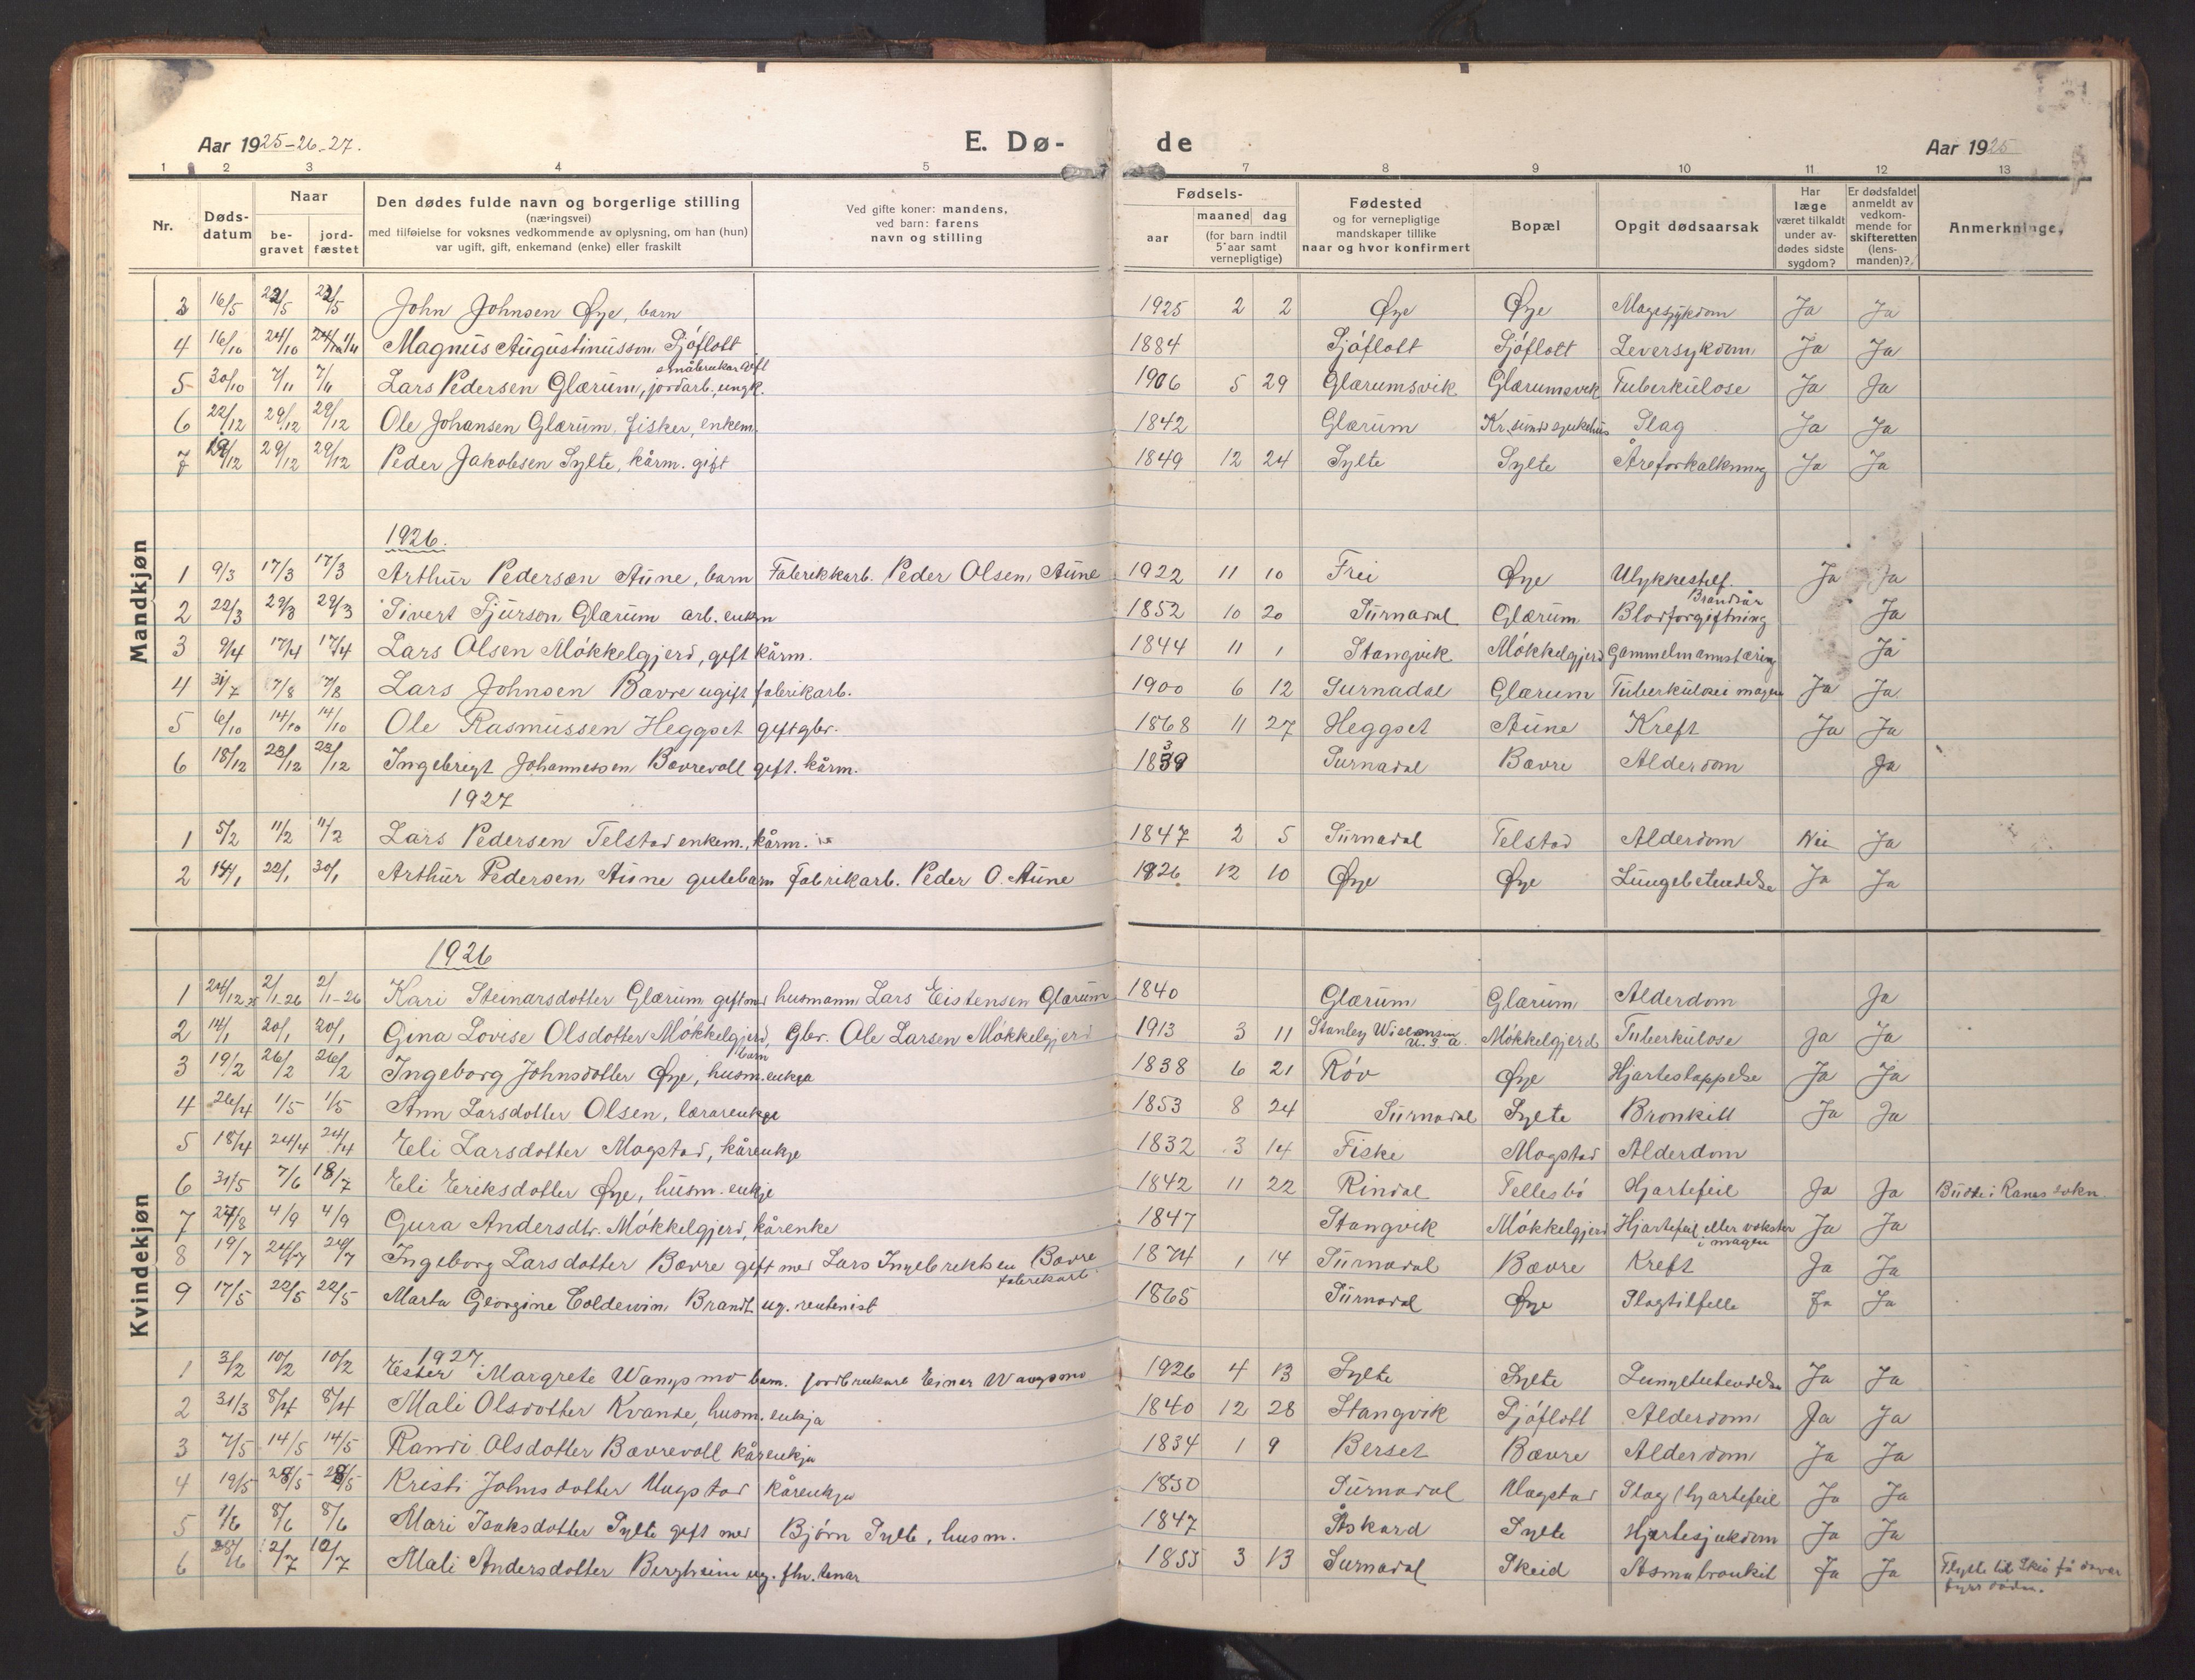 Aar 1925-26-27.
E. Dø-
de
Aar 1925
1 2 3 4 5 7 8 9 10 11 12 13
Nr.
Døds-
datum
Naar
be-
gravet
jord-
fæstet
Den dødes fulde navn og borgerlige stilling
(næringsvei)
med tilføielse for voksnes vedkommende av oplysning, om han (hun)
var ugift, gift, enkemand (enke) eller fraskilt
Ved gifte koner: mandens,
ved barn: farens
navn og stilling
Fødsels-
aar
maaned dag
(for barn indtil
5 aar samt
vernepligtige)
Fødested
og for vernepligtige
mandskaper tillike
naar og hvor konfirmert
Bopæl
Opgit dødsaarsak
Har
læge
været tilkaldt
under av-
dødes sidste
sygdom?
Er dødsfaldet
anmeldt av
vedkom-
mende for
skifteretten
(lens-
manden)?
Anmerkninge,
Mandkjøn
3 16/5 22/5 22/5 John Johnsen Øye, barn 1925 2 2 Øye Øye Magesykdom Ja Ja
4 16/10 24/10 Magnus Augustinusson Sjøflott 1884 Sjøflott Sjøflott Leversykdom Ja Ja
småbrukar gift
5 30/10 7/11 7/11 Lars Pedersen Glærum, jordarb., ungk. 1906 5 29 Glærumsvik Glærumsvik Tuberkulose Ja Ja
6 22/12 29/12 29/12 Ole Johansen Glærum, fisker, enkem. 1842 Glærum Kr.sunds sjukehus Slag Ja Ja
7 19/12 29/12 29/12 Peder Jakobsen Sylte, kårm. gift 1849 12 24 Sylte Sylte Åreforkalkning Ja Ja
1926.
1 9/3 17/3 17/3 Arthur Pedersen Aune, barn Fabrikkarb. Peder Olsen Aune 1922 11 10 Frei Øye Ulykkestilf. Ja Ja
Brandsår
2 22/3 29/3 29/3 Sivert Sjurson Glærum arb. enkm 1852 10 20 Surnadal Glærum Blodforgiftning Ja
3 9/4 17/4 17/4 Lars Olsen Møkkelgjerd, gift kårm. 1844 11 1 Stangvik Møkkelgjerd Gammelmannstæring Ja
4 31/7 7/8 7/8 Lars Johnsen Bævre ugift fabrikarb. 1900 6 12 Surnadal Glærum Tuberkulose i magen Ja Ja
5 6/10 14/10 14/10 Ole Rasmussen Heggset gift gbr. 1868 11 27 Heggset Aune Kreft Ja Ja
6 18/12 23/12 23/12 Ingebrigt Johannessen Bævrevoll gift. kårm. 1839 Surnadal Bævre Alderdom Ja
1927
1 5/2 11/2 11/2 Lars Pedersen Telstad enkem., kårm. 1847 2 5 Surnadal Telstad Alderdom Nei Ja
2 14/1 22/1 30/1 Arthur Pedersen Aune gutebarn Fabrikarb. Peder O. Aune 1926 12 10 Øye Øye Lungebetendelse Ja Ja
Kvindekjøn
1926
1 24/12 25 2/1-26 2/1-26 Kari Steinarsdotter Glærum gift med husmann Lars Eistensen Glærum 1840 Glærum Glærum Alderdom Ja
2 14/1 20/1 20/1 Gina Lovise Olsdotter Møkkelgjerd, Gbr. Ole Larsen Møkkelgjerd 1913 3 11 Stanley Wisconsin U.S.A. Møkkelgjerd Tuberkulose Ja Ja
barn
3 19/2 26/2 26/2 Ingeborg Johnsdotter Øye, husm. enkja 1838 6 21 Røv Øye Hjarteslappelse Ja Ja
4 26/4 1/5 1/5 Ann Larsdotter Olsen, lærarenkje 1853 8 24 Surnadal Sylte Bronkitt Ja Ja
5 18/4 24/4 24/4 Eli Larsdotter Mogstad, kårenkje 1832 3 14 Fiske Mogstad Alderdom
6 31/5 7/6 18/7 Eli Eriksdotter Øye, husm. enkje 1842 11 22 Rindal Tellesbø Hjartefeil Ja Ja Budde i Ranes sokn
7 27/8 4/9 4/9 Gura Andersdtr. Møkkelgjerd, kårenke 1847 Stangvik Møkkelgjerd Hjartefeil eller vokster i magen Ja Ja
8 19/7 24/7 24/7 Ingeborg Larsdotter Bævre gift med Lars Ingebrektsen Bævre 1874 1 14 Surnadal Bævre Kreft Ja Ja
fabrikarb.
9 17/5 22/5 22/5 Marta Georgine Coldevin Brandt ug. rentenist 1865 Surnadal Øye Slagtilfelle Ja Ja
1927.
1 3/2 10/2 10/2 Ester Margrete Wangsmo barn. jordbrukare Einar Wangsmo 1926 4 13 Sylte Sylte Lungebetendelse Ja Ja
2 31/3 8/4 8/4 Mali Olsdotter Kvande, husm. enkja 1840 12 28 Stangvik Sjøflott Alderdom Ja Ja
3 7/5 14/5 14/5 Randi Olsdotter Bævrevoll kårenkja 1834 1 9 Berset Bævre Alderdom Ja Ja
4 19/5 28/5 28/5 Kristi Johnsdotter Mogstad kårenkja 1830 Surnadal Mogstad Slag (hjartefeil Ja Ja
5 1/6 8/6 8/6 Mari Isaksdotter Sylte gift med Bjørn Sylte, husm. 1847 Åskard Sylte Hjertesjukdom Ja Ja
6 28/6 12/7 12/7 Mali Andersdotter Bergheim ug. fhv. tenar 1855 3 13 Surnadal Skeid Astmabronkit Ja Ja Flytte til Skei få davar fyrr døden.